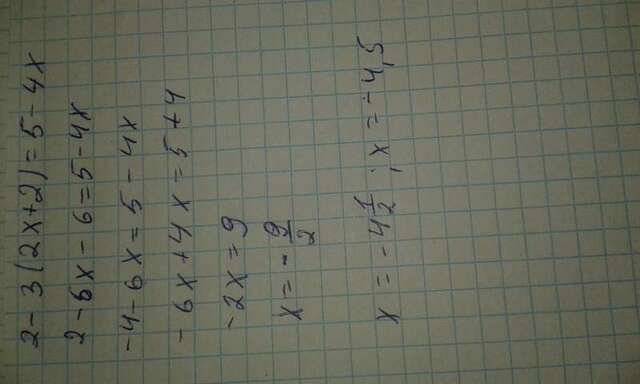 2-3(2x+2)=5-4x
2-6x-6=5-4x
-4-6x=5-4x
-6x+4x=5+4
-2x=9
x=-9/2
x=-4 1/2; x=-4,5